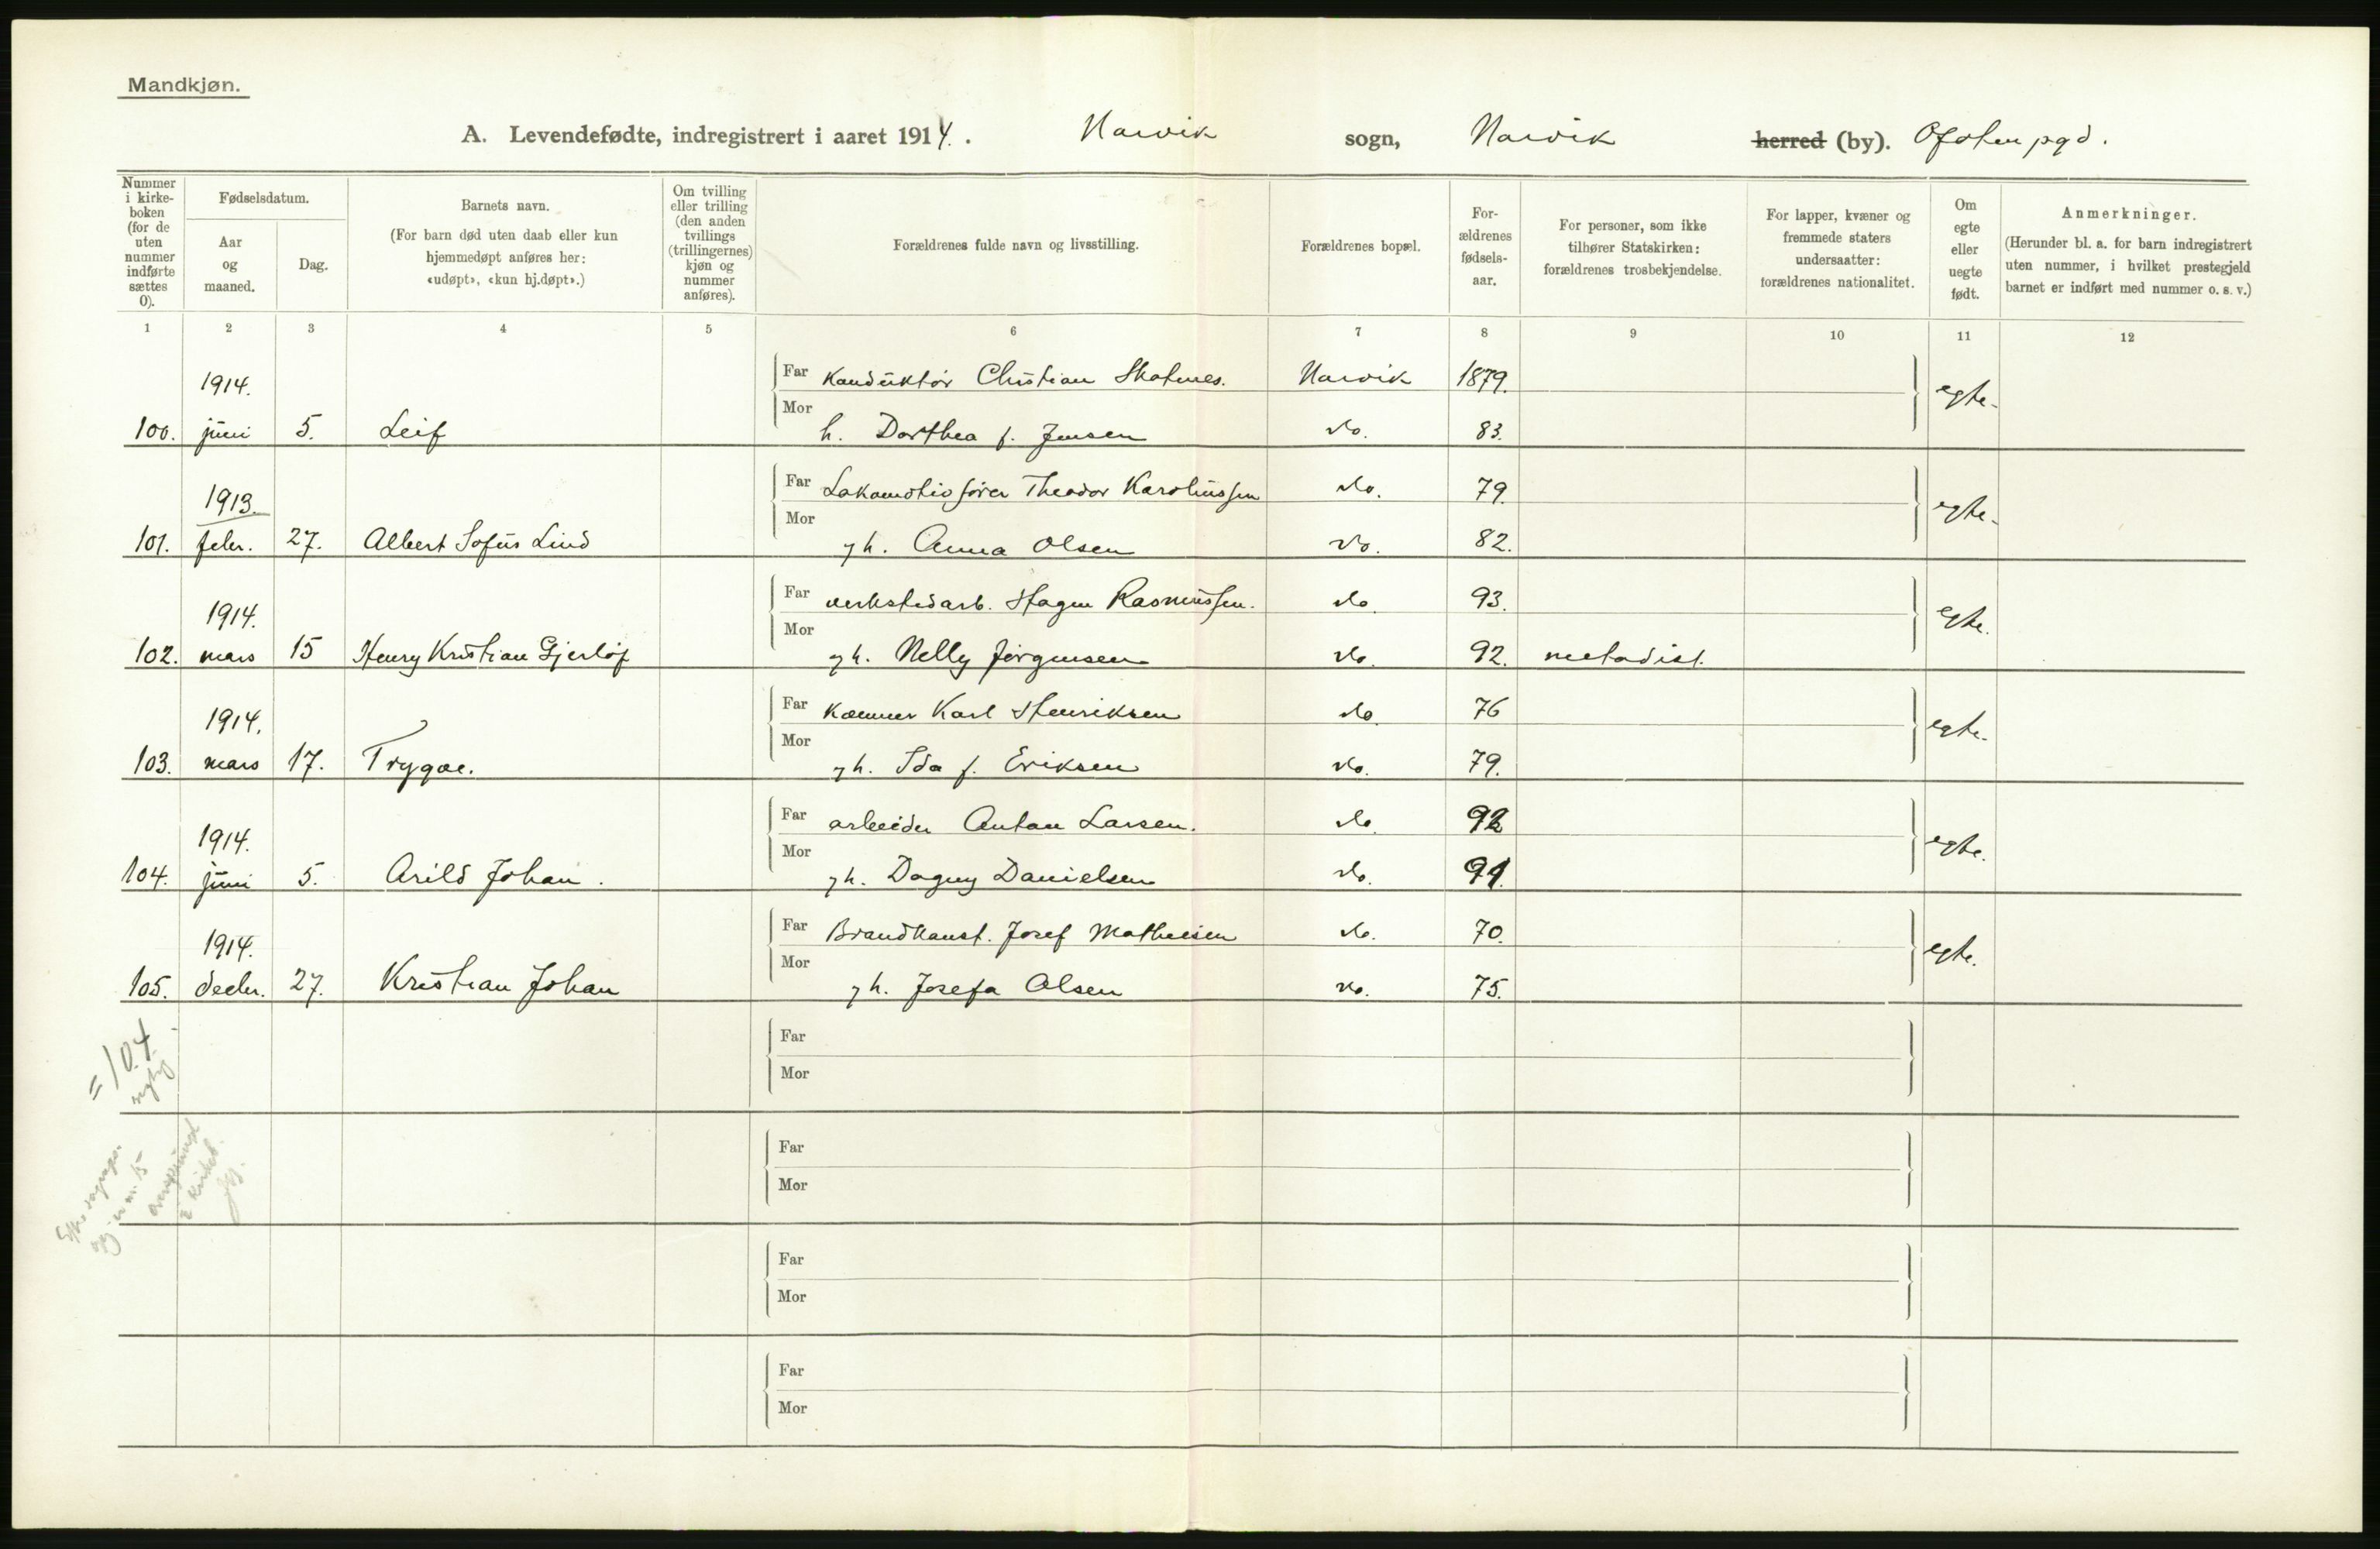 Mandkjøn.
A. Levendefødte, indregistrert i aaret 1914. Narvik sogn, Narvik herred (by). Ofoten pgd.
Nummer i kirke-boken (for de uten nummer indførte sættes 0).
Fødselsdatum.
Aar og maaned.
Dag.
Barnets navn.
(For barn død uten daab eller kun hjemmedøpt anføres her: «udøpt», «kun hj.døpt».)
Om tvilling eller trilling (den anden tvillings (trillingernes) kjøn og nummer anføres).
Forældrenes fulde navn og livsstilling.
Forældrenes bopæl.
For-ældrenes fødsels-aar.
For personer, som ikke tilhører Statskirken: forældrenes trosbekjendelse.
For lapper, kvæner og fremmede staters undersaatter: forældrenes nationalitet.
Om egte eller uegte født.
Anmerkninger.
(Herunder bl. a. for barn indregistrert uten nummer, i hvilket prestegjeld barnet er indført med nummer o. s. v.)
1 2 3 4 5 6 7 8 9 10 11 12
1914. Far Konduktør Christian Skotnes. Narvik 1879. egte.
100. juni 5. Leif Mor h. Dorthea f. Jensen do. 83.
1913. Far Lokomotivfører Theodor Karoliussen do. 79. egte.
101. febr. 27. Albert Sofus Lind Mor gh. Anna Olsen do. 82.
1914. Far verkstedarb. Hagen Rasmussen. do. 93. egte.
102. mars 15 Henry Kristian Gjerløf Mor gh. Nelly Jørgensen do. 92. metodist.
1914. Far Kæmner Karl Henriksen do. 76 egte.
103. mars 17. Trygve. Mor gh. Ida f. Eriksen do. 79.
1914. Far arbeider Anton Larsen. do. 92 egte.
104. juni 5. Arild Johan. Mor gh. Dagny Danielsen do. 91.
1914. Far Brandkonst. Josef Mathisen do. 70. egte.
105. decbr. 27. Kristian Johan Mor gh. Josefa Olsen do. 75.
= 104
Far
Mor
Far
Mor
Far
Mor
Far
Mor